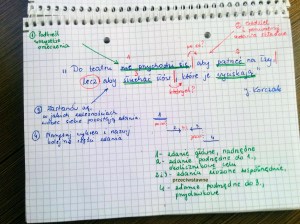 ① Podkreśl wszystkie orzeczenia
② Oddziel
„Do teatru nie przychodzi się, aby patrzeć na łzy,
lecz aby słuchać słów, które je wyciskają.
których?
J. Korczak
③ Zastanów się,
w jakich zależnościach
wobec siebie pozostają zdania.
④ Narysuj wykres i nazwij
kolejno części zdania
1 - zdanie główne, nadrzędne
2 - zdanie podrzędne do 1,
okolicznikowe celu
2 i 3 - zdania złożone współrzędnie
przeciwstawne
4 - zdanie podrzędne do 3,
przydawkowe